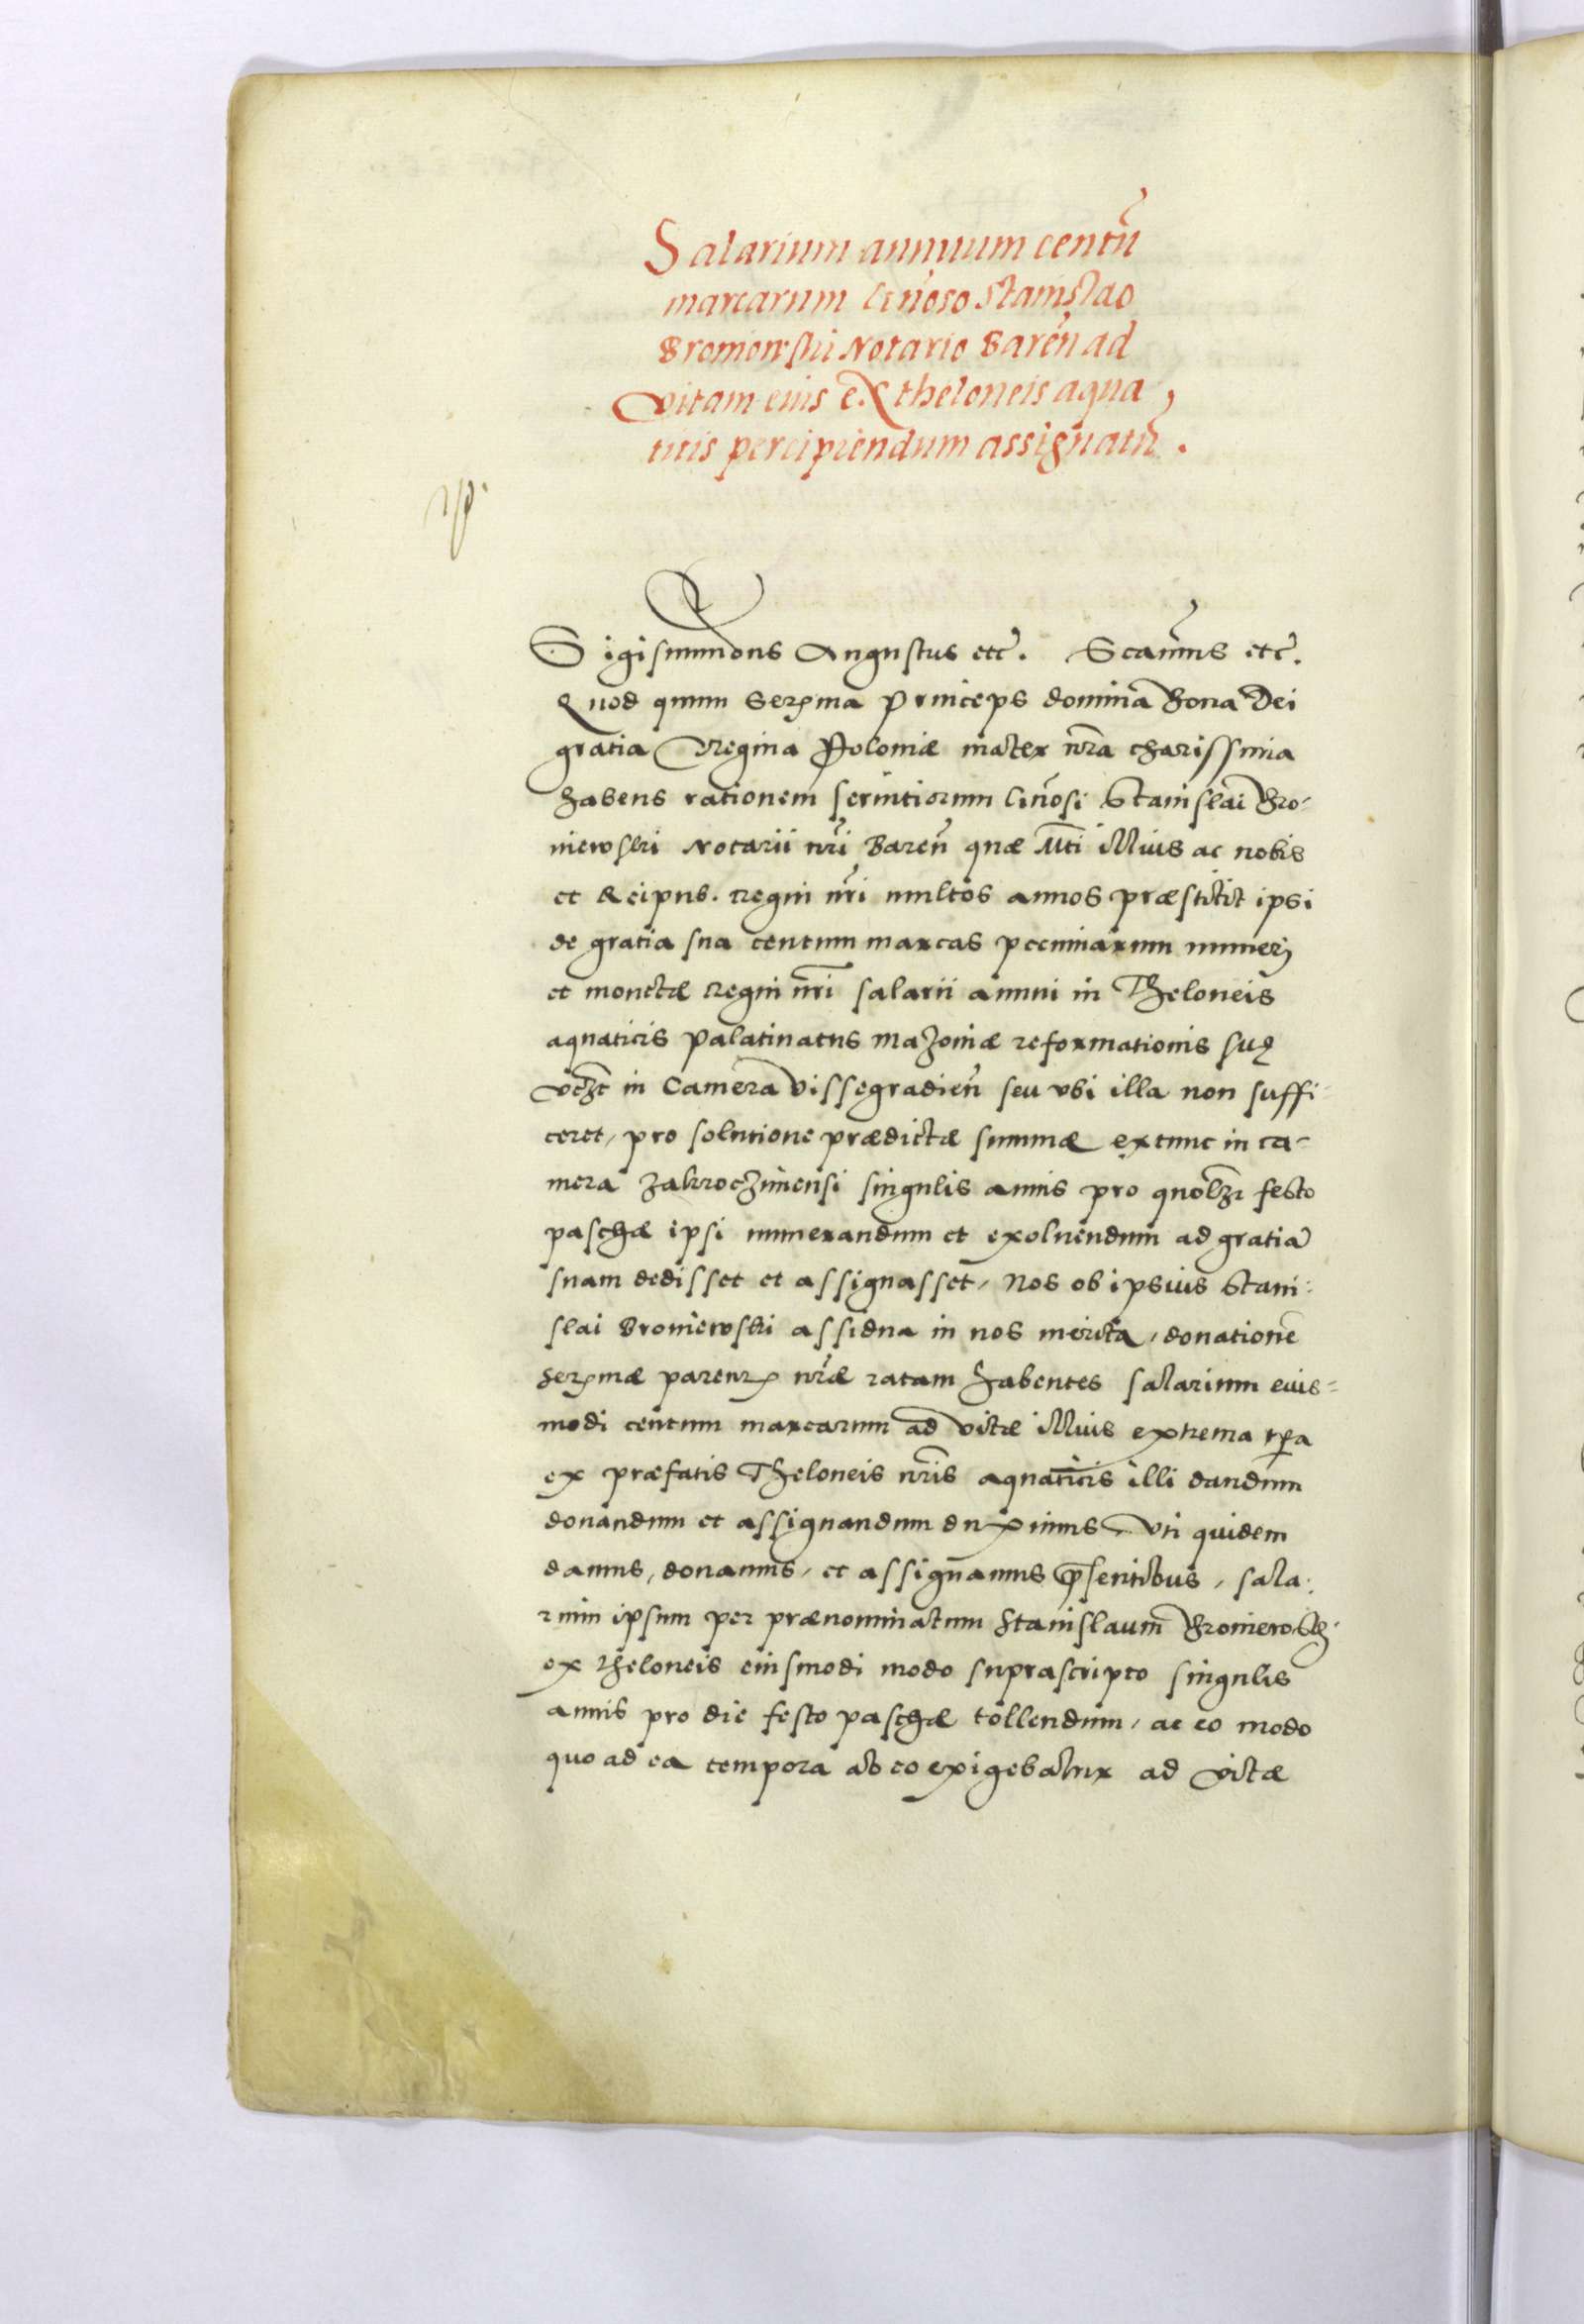 Salarium annuum centū
marcarum Gñoso Stanislao
Broniowski Notario Bareñ ad
vitam eius ex theloneis aqua,
ticis percipiendum assignatū.
Sigismundus Augustus etc̃. Scimus etc̃.
Quod quum Serꝫma Princeps domina Bona Dei
gratia Regina Poloniæ mater nr̃a charissima
habens rationem seruitiorum Gñosi Stanislai Bro-
niewski Notarii nr̃i Bareñ quæ Mt̃i illius ac nobis
et Reipub. regni nr̃i multos annos præstitit ipsi
de gratia sua centum marcas pecuniarum numeri
et monetæ regni nr̃i salarii annui in Theloneis
aquaticis Palatinatus Mazoniæ reformationis suę
vcꝫt in Camera Vissegradieñ seu vbi illa non suffi-
ceret, pro solutione prædictæ summæ extunc in ca-
mera Zakroczimensi singulis annis pro quolꝫ festo
paschæ ipsi numerandum et exoluendum ad gratiā
suam dedisset et assignasset, Nos ob ipsius Stani-
slai Broniewski assidua in nos merita, donationē
serꝫmæ parentꝫ nr̃æ ratam habentes salarium eius-
modi centum marcarum ad vitæ illius extrema tp̃a
ex præfatis Theloneis nr̃is aquaticis illi dandum
donandum et assignandum duximus. Vti quidem
damus, donamus, et assignamus p̃sentibus, sala-
rium ipsum per prænominatum Stanislaum Broniewsk.
ex theloneis eiusmodi modo suprascripto singulis
annis pro die festo paschæ tollendum, ac eo modo
quo ad ea tempora ab eo exigebatur ad vitæ